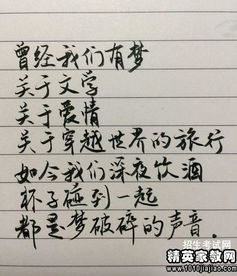 曾经我们有梦
关于文学
关于爱情
关于穿越世界的旅行
如今我们深夜饮酒
杯子碰到一起
都是梦破碎的声音。
招生考试网
精英家教网